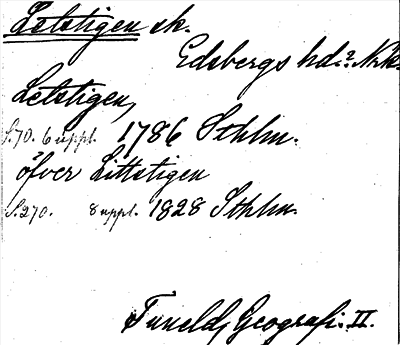 Letstigen sk.
Edsbergs hd? Nrke.
Letstigen,
S.70. 6 uppl. 1786 Sthlm.
öfver Littstigen
S.270. 8 uppl. 1828 Sthlm.
Tuneld, Geografi. II.